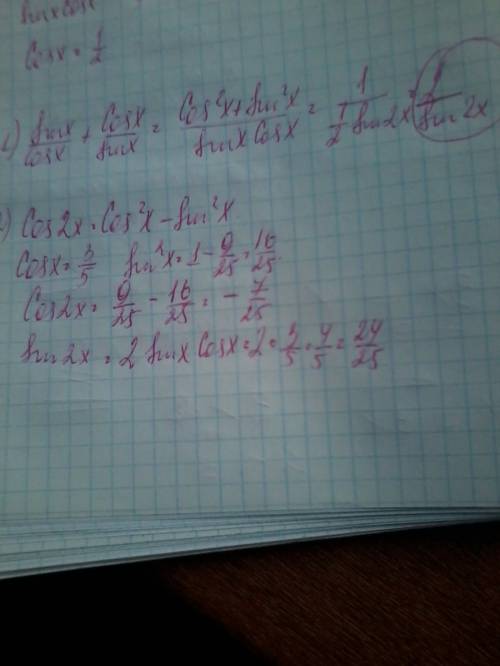 sinx cosx
Cosx = 1/2
1) sinx/cosx + Cosx/sinx = Cos²x + sin²x / sinx Cosx = 1 / 1/2 sin2x = / sin 2x
2) Cos2x = Cos²x - sin²x
Cosx = 3/5 sin²x = 1 - 9/25 = 16/25
Cos2x = 9/25 - 16/25 = - 7/25
sin2x = 2 sinx Cosx = 2 · 3/5 · 4/5 = 24/25